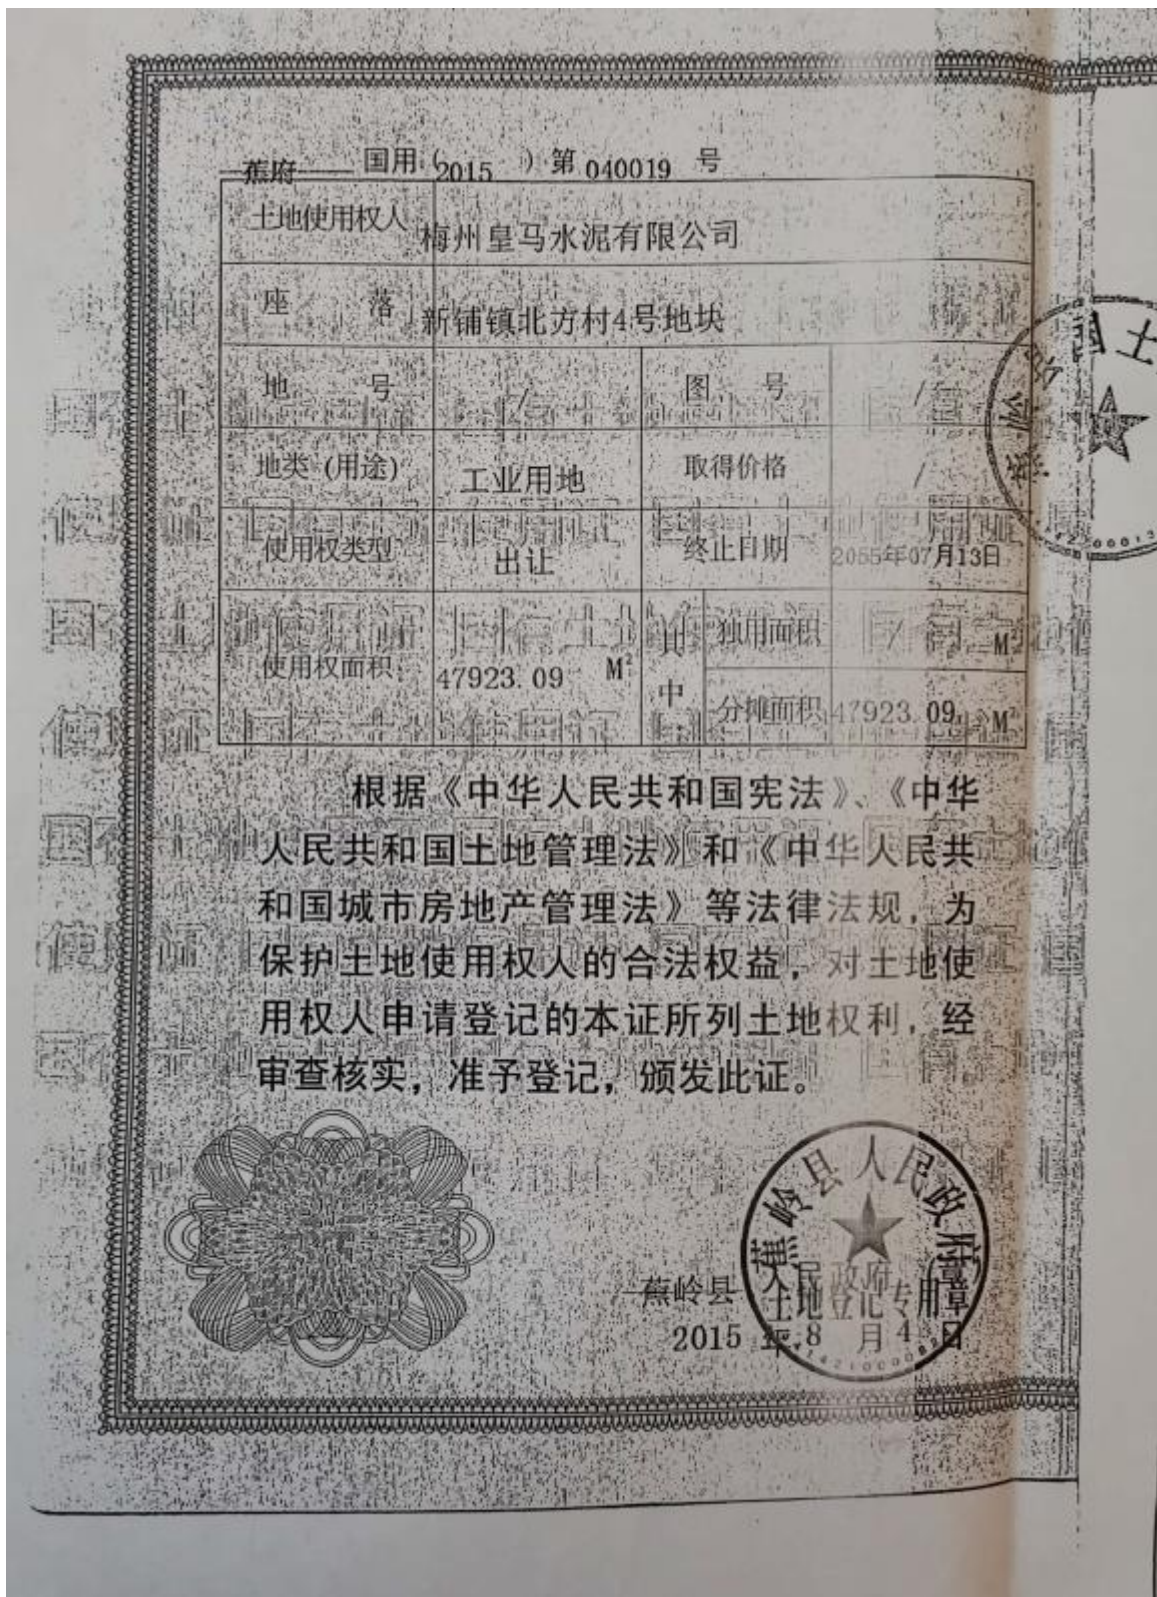 蕉府 国用(2015)第 040019 号
土地使用权人 梅州皇马水泥有限公司
座 落 新铺镇北方村4号地块
地 号 / 图 号 /
地类(用途) 工业用地 取得价格 /
使用权类型 出让 终止日期 2055年07月13日
使用权面积 47923.09 M² 其中 独用面积 / M²
分摊面积 47923.09 M²
根据《中华人民共和国宪法》、《中华
人民共和国土地管理法》和《中华人民共
和国城市房地产管理法》等法律法规,为
保护土地使用权人的合法权益,对土地使
用权人申请登记的本证所列土地权利,经
审查核实,准予登记,颁发此证。
蕉岭县人民政府
蕉岭县 人民政府(章)
土地登记专用章
2015 年 8 月 4 日
国土